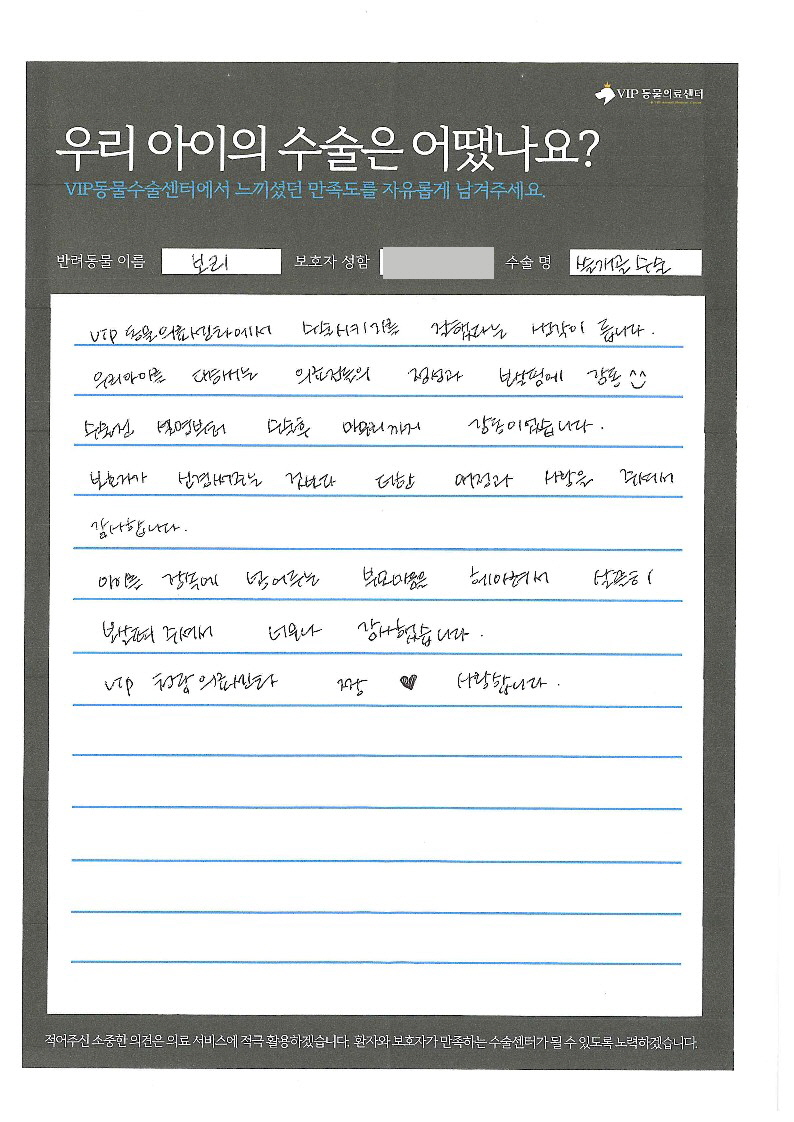 VIP 동물의료센터
우리 아이의 수술은 어땠나요?
VIP동물수술센터에서 느끼셨던 만족도를 자유롭게 남겨주세요.
반려동물 이름 보리 보호자 성함 수술 명 슬개골 수술
VIP 동물의료센터에서 수술시키기를 잘했다는 생각이 듭니다.
우리아이를 대해주는 의료진들의 정성과 보살핌에 감동 ^^
수술전 설명부터 수술후 마무리까지 감동이었습니다.
보호자가 신경써주는 것보다 더한 애정과 사랑을 주셔서
감사합니다.
아이를 수술에 맡겨주는 부모마음을 헤아려서 살뜰히
보살펴 주셔서 너무나 감사했습니다.
VIP 청담의료센타 짱 ♥ 사랑합니다.
적어주신 소중한 의견은 의료 서비스에 적극 활용하겠습니다. 환자와 보호자가 만족하는 수술센터가 될 수 있도록 노력하겠습니다.